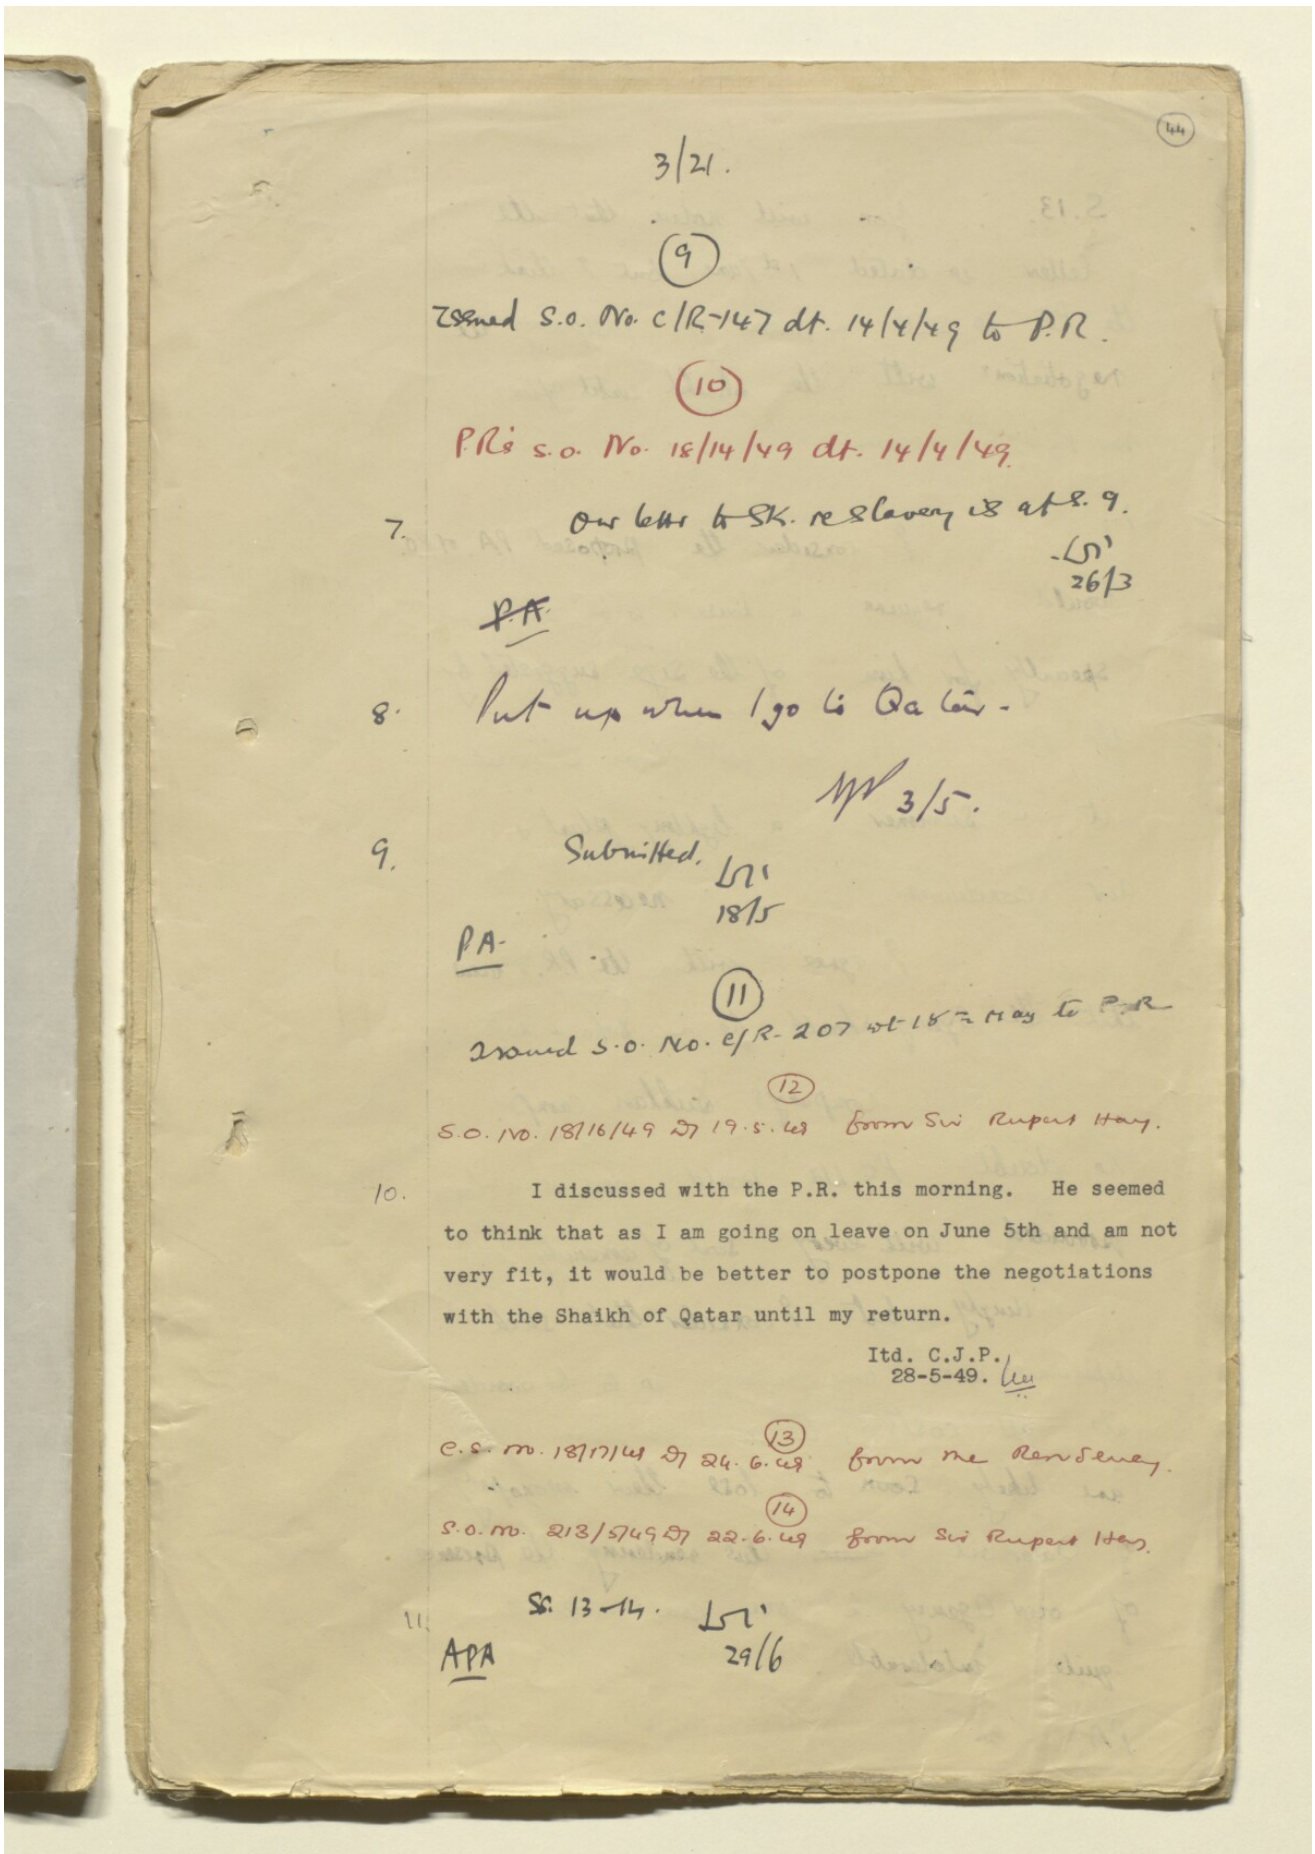 44
3/21.
9
Issued S.O. No. C/R-147 dt. 14/4/49 to P.R.
10
P.R's S.O. No. 18/14/49 dt. 14/4/49.
7. Our letter to Sk. re slavery is at S. 9.
26/3
P.A.
8. Put up when I go to Qatar.
3/5.
9. Submitted.
18/5
P.A.
11
Issued S.O. No. C/R-207 dt 18th May to P.R
12
S.O. No. 18/16/49 Dt 19.5.49 from Sir Rupert Hay.
10. I discussed with the P.R. this morning. He seemed
to think that as I am going on leave on June 5th and am not
very fit, it would be better to postpone the negotiations
with the Shaikh of Qatar until my return.
Itd. C.J.P.
28-5-49.
13
C.S. No. 18/17/49 Dt 24.6.49 from the Residency.
14
S.O. No. 213/5/49 Dt 22.6.49 from Sir Rupert Hay.
11. SS. 13-14.
29/6
APA